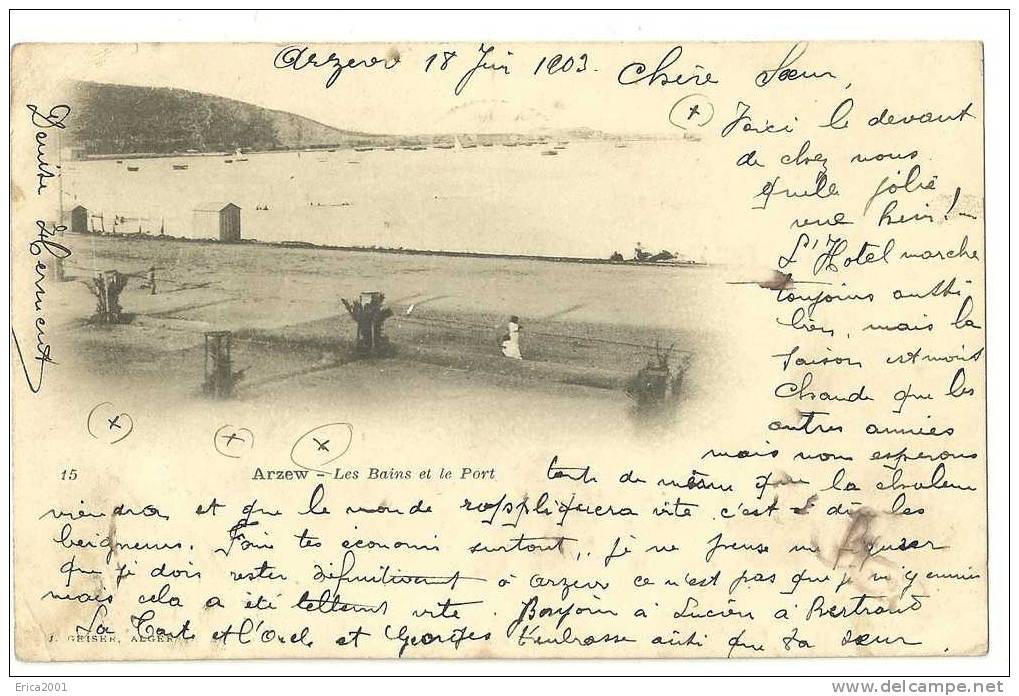 Arzew 18 Juin 1903.
Chère Sœur,
Voici le devant
de chez nous
quelle jolie
vue hein!
L'Hotel marche
toujours aussi
bien, mais la
saison est moins
chaude que les
autres années
mais nous esperons
tout de même que la chaleur
viendra et que le monde rappliquera vite c'est à dire les
beigneurs. Fais tes économis surtout, je ne pense
que je dois rester définitivement à Arzew ce n'est pas que je m'y ennui
mais cela a été tellement vite. Bonjour à Lucien à Bertrand
La Tante et l'Oncle et Georges t'embrasse ainsi que ta sœur
Louise Hermant
15
Arzew – Les Bains et le Port
J. GEISER, ALGER
Erica2001
www.delcampe.net